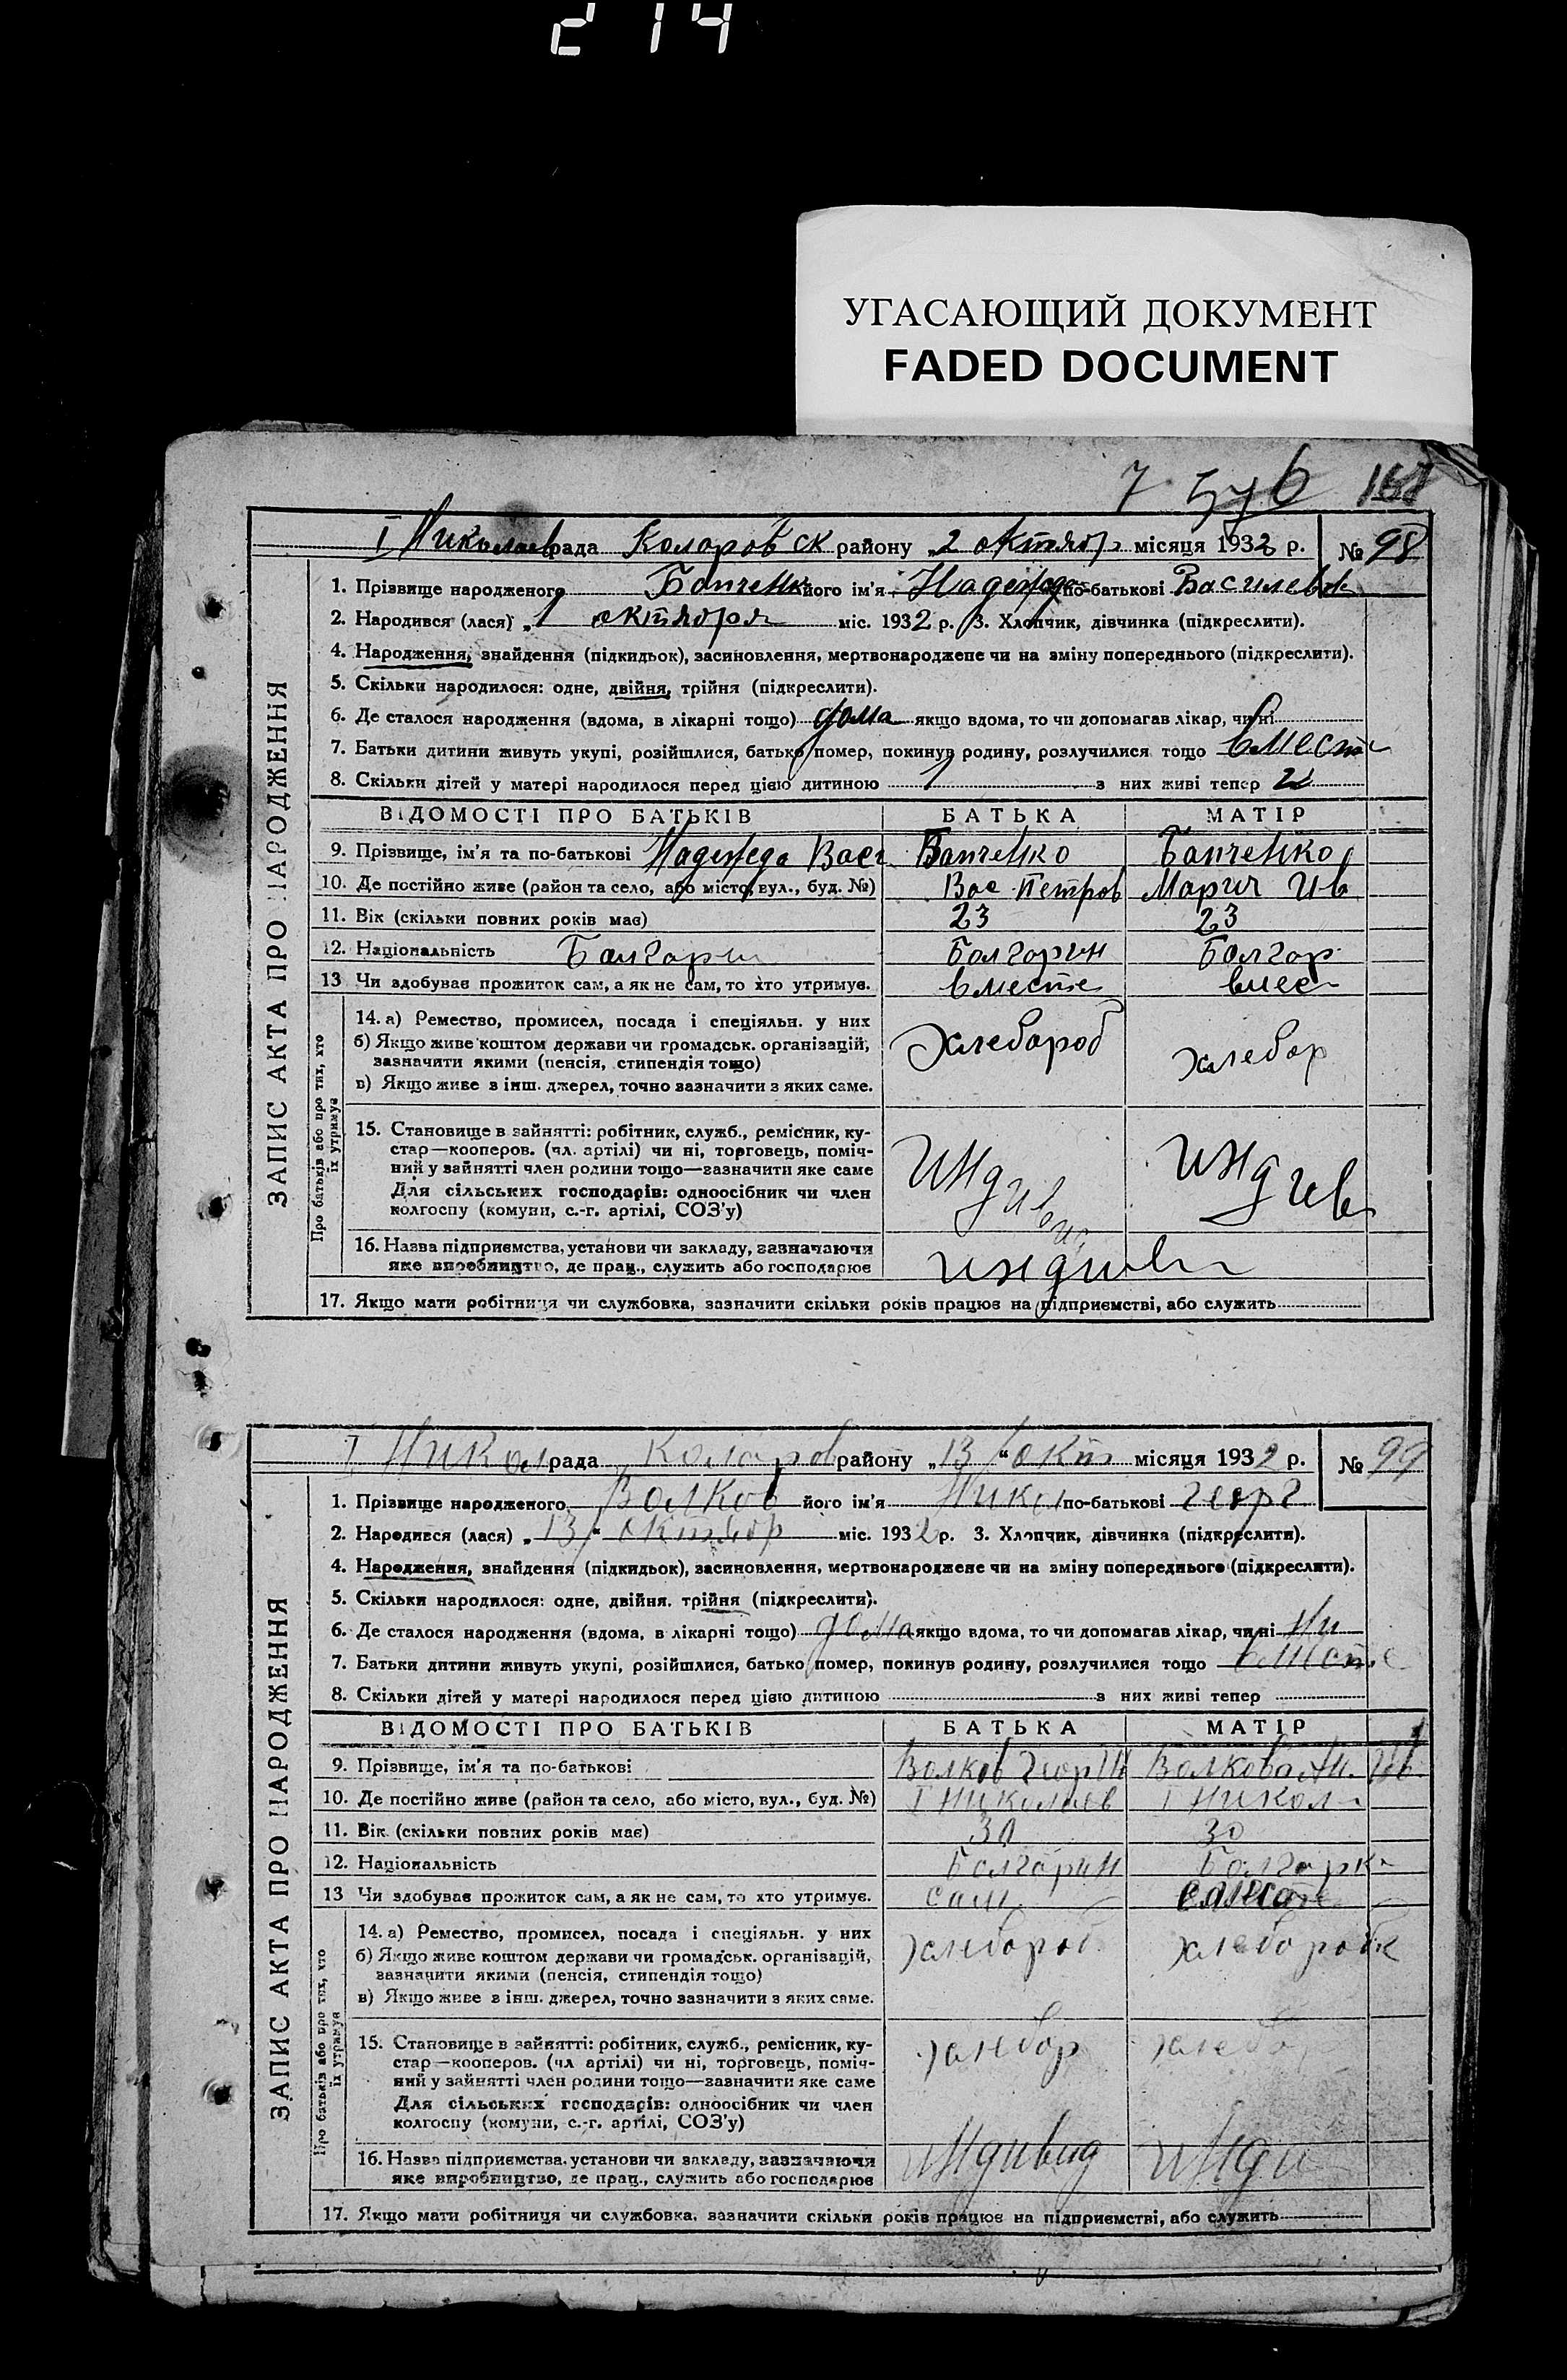 214
УГАСАЮЩИЙ ДОКУМЕНТ
FADED DOCUMENT
7 168
I Николаев рада Коларовск району „2 октябр місяця 1932 р. № 98
1. Прізвище народженого Бапченк його ім'я Надежда по-батькові Василевн
2. Народився (лася) „1 октября міс. 1932 р. 3. Хлопчик, дівчинка (підкреслити).
4. Народження, знайдення (підкидьок), засиновлення, мертвонароджене чи на зміну попереднього (підкреслити).
5. Скільки народилося: одне, двійня, трійня (підкреслити).
6. Де сталося народження (вдома, в лікарні тощо) дома якщо вдома, то чи допомагав лікар, чи ні
7. Батьки дитини живуть укупі, розійшлися, батько помер, покинув родину, розлучилися тощо вмест
8. Скільки дітей у матері народилося перед цією дитиною 1 з них живі тепер
ВІДОМОСТІ ПРО БАТЬКІВ БАТЬКА МАТІР
9. Прізвище, ім'я та по-батькові Надежда Вас Бапченко Бапченко
10. Де постійно живе (район та село, або місто, вул., буд. №) Вас Петров Мария Ив
11. Вік (скільки повних років має) 23 23
12. Національність Болгари Болгарин Болгар
13 Чи здобував прожиток сам, а як не сам, то хто утримує. вместе вмес
14. а) Ремество, промисел, посада і спеціяльн. у них
б) Якщо живе коштом держави чи громадськ. організацій, зазначити якими (пенсія, стипендія тощо) Хлебороб хлебор
в) Якщо живе з інш. джерел, точно зазначити з яких саме.
15. Становище в зайнятті: робітник, служб., ремісник, ку-
стар—кооперов. (чл. артілі) чи ні, торговець, поміч-
ний у зайнятті член родини тощо—зазначити яке саме индивид индив
Для сільських господарів: одноосібник чи член
колгоспу (комуни, с.-г. артілі, СОЗ'у)
16. Назва підприємства, установи чи закладу, зазначаючи
яке виробництво, де прац., служить або господарює индив
17. Якщо мати робітниця чи службовка, зазначити скільки років працює на підприємстві, або служить
ЗАПИС АКТА ПРО НАРОДЖЕННЯ
Про батьків або про тих, хто їх утримує
I Никол рада Коларов району „13“ окт місяця 1932 р. № 99
1. Прізвище народженого Волков його ім'я Никол по-батькові Георг
2. Народився (лася) „13“ октябр міс. 1932 р. 3. Хлопчик, дівчинка (підкреслити).
4. Народження, знайдення (підкидьок), засиновлення, мертвонароджене чи на зміну попереднього (підкреслити).
5. Скільки народилося: одне, двійня, трійня (підкреслити).
6. Де сталося народження (вдома, в лікарні тощо) дома якщо вдома, то чи допомагав лікар, чи ні Ни
7. Батьки дитини живуть укупі, розійшлися, батько помер, покинув родину, розлучилися тощо вместе
8. Скільки дітей у матері народилося перед цією дитиною з них живі тепер
ВІДОМОСТІ ПРО БАТЬКІВ БАТЬКА МАТІР
9. Прізвище, ім'я та по-батькові Волков Георги Волкова Ан. Ив.
10. Де постійно живе (район та село, або місто, вул., буд. №) I Николаев I Никол
11. Вік (скільки повних років має) 30 30
12. Національність Болгарин Болгарка
13 Чи здобував прожиток сам, а як не сам, то хто утримує. сам
14. а) Ремество, промисел, посада і спеціяльн. у них
б) Якщо живе коштом держави чи громадськ. організацій, зазначити якими (пенсія, стипендія тощо) хлебороб хлеборобк
в) Якщо живе з інш. джерел, точно зазначити з яких саме.
15. Становище в зайнятті: робітник, служб., ремісник, ку-
стар—кооперов. (чл артілі) чи ні, торговець, поміч- хлебор хлебо
ний у зайнятті член родини тощо—зазначити яке саме
Для сільських господарів: одноосібник чи член
колгоспу (комуни, с.-г. артілі, СОЗ'у)
16. Назва підприємства, установи чи закладу, зазначаючи
яке виробництво, де прац., служить або господарює индивид инди
17. Якщо мати робітниця чи службовка, зазначити скільки років працює на підприємстві, або служить
ЗАПИС АКТА ПРО НАРОДЖЕННЯ
Про батьків або про тих, хто їх утримує